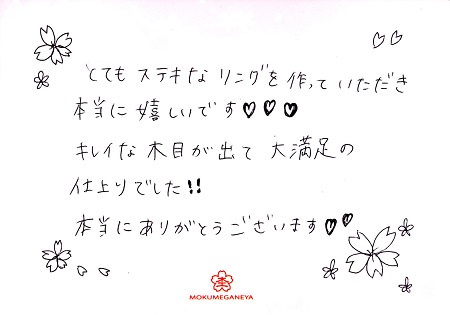 とても ステキな リングを 作って いただき
本当に 嬉しいです♡♡♡
キレイな 木目が出て 大満足の
仕上りでした!!
本当にありがとうございます♡♡
MOKUMEGANEYA